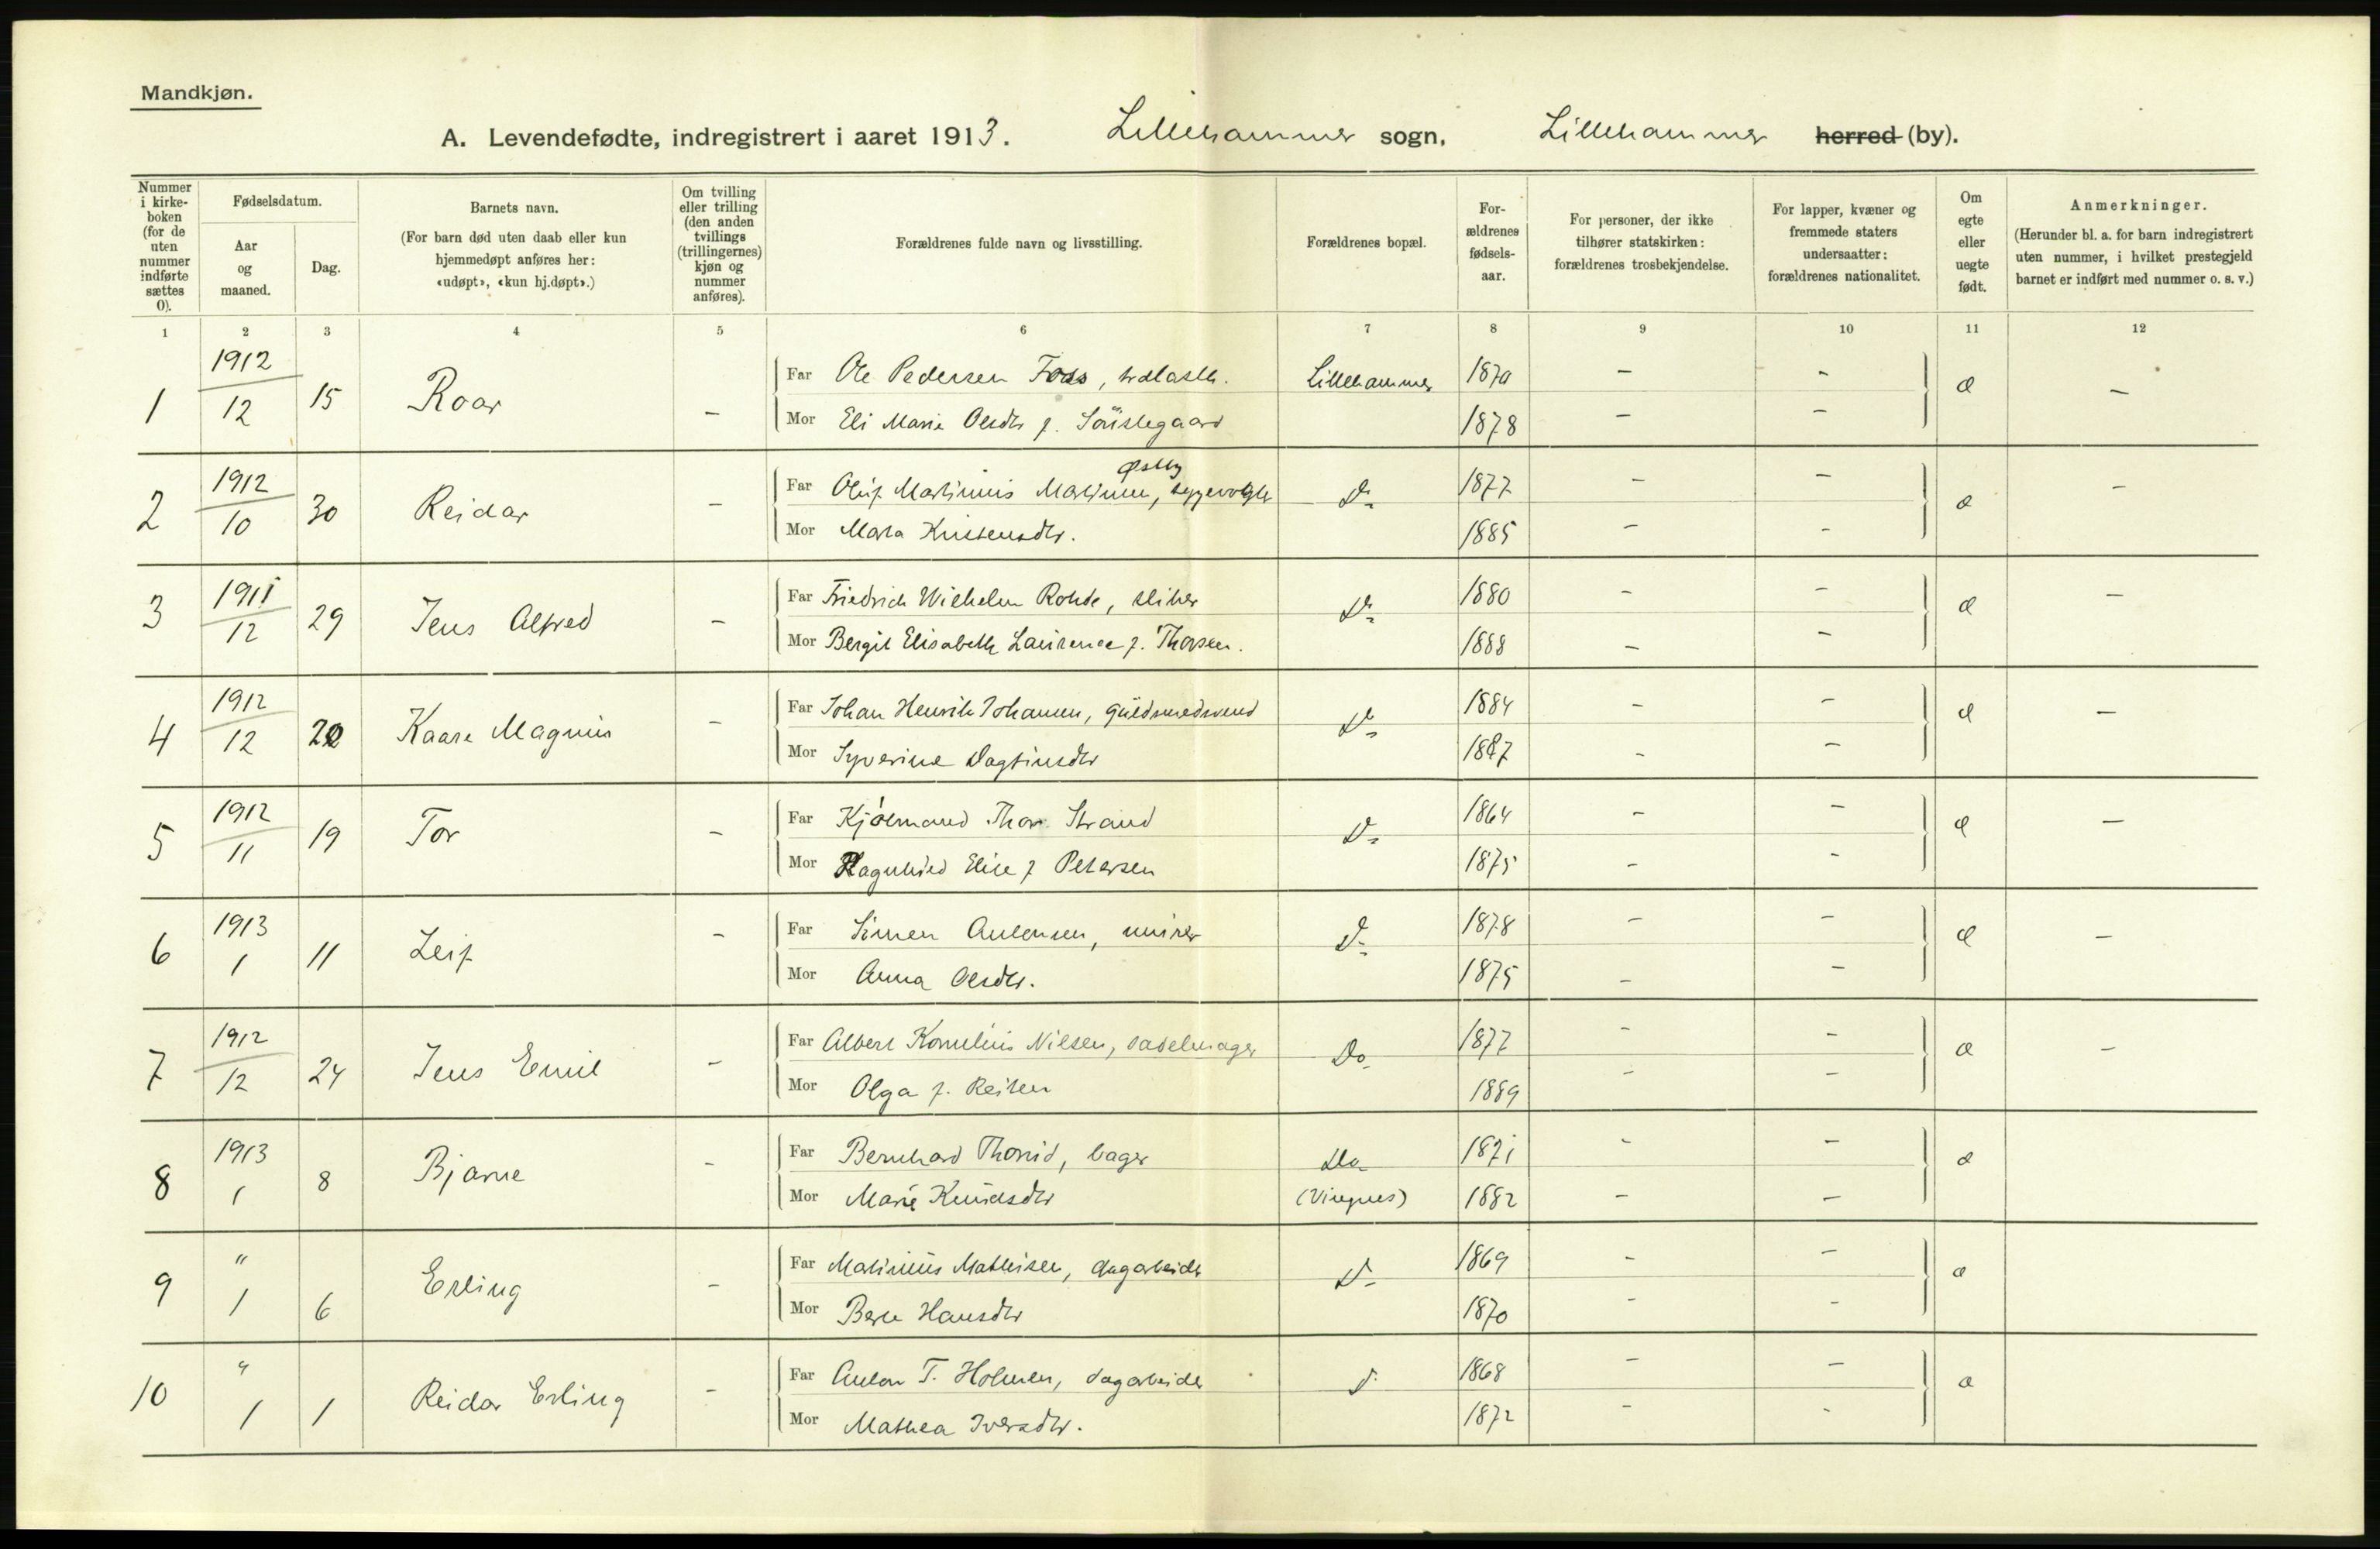 Mandkjøn.
A. Levendefødte, indregistrert i aaret 1913. Lillehammer sogn, Lillehammer herred (by).
Nummer i kirkeboken (for de uten nummer indførte sættes 0).
Fødselsdatum.
Aar og maaned.
Dag.
Barnets navn.
(For barn død uten daab eller kun hjemmedøpt anføres her: «udøpt», «kun hj.døpt».)
Om tvilling eller trilling (den anden tvillings (trillingernes) kjøn og nummer anføres).
Forældrenes fulde navn og livsstilling.
Forældrenes bopæl.
Forældrenes fødselsaar.
For personer, der ikke tilhører statskirken: forældrenes trosbekjendelse.
For lapper, kvæner og fremmede staters undersaatter: forældrenes nationalitet.
Om egte eller uegte født.
Anmerkninger.
(Herunder bl. a. for barn indregistrert uten nummer, i hvilket prestegjeld barnet er indført med nummer o. s. v.)
1 2 3 4 5 6 7 8 9 10 11 12
1 1912/12 15 Roar – Far Ole Pedersen Foss, Lillehammer 1870 – – æ –
Mor Eli Marie Olsdtr f. 1878 – –
2 1912/10 30 Reidar – Far Oluf Martinius Martinsen Østby, Do 1877 – – æ –
Mor Marta Kristensdtr. 1885 – –
3 1911/12 29 Jens Alfred – Far Friedrich Wilhelm Rohde, sliber Do 1880 – – æ –
Mor Bergit Elisabeth Laurence f. Thorsen. 1888 – –
4 1912/12 Kaare Magnus – Far Johan Henrik Johansen, guldsmedsvend Do 1884 – – æ –
Mor Syverine Dagfinsdtr 1887 – –
5 1912/11 19 Tor – Far Kjøbmand Thor Strand Do 1864 – – æ –
Mor Ragnhild Elise f Petersen 1875 – –
6 1913 1 11 Leif – Far Simen Antonsen, murer Do 1878 – – æ –
Mor Anna Olsdtr. 1875 – –
7 1912/12 24 Jens Emil – Far Albert Kornelius Nilsen, sadelmager Do 1877 – – æ –
Mor Olga f. Reiten 1889 – –
8 1913 1 8 Bjarne – Far Bernhard Thorud, bager Do 1871 – – æ
Mor Marie Knudsdtr (Vingnes) 1882 – –
9 " 1 6 Erling – Far Martinius Mathisen, dagarbeider Do 1869 – – æ
Mor Berte Hansdtr 1870 – –
10 " 1 1 Reidar Erling – Far Anton T. Holmen, dagarbeider Do 1868 – – æ
Mor Mathea Iversdtr. 1872 – –